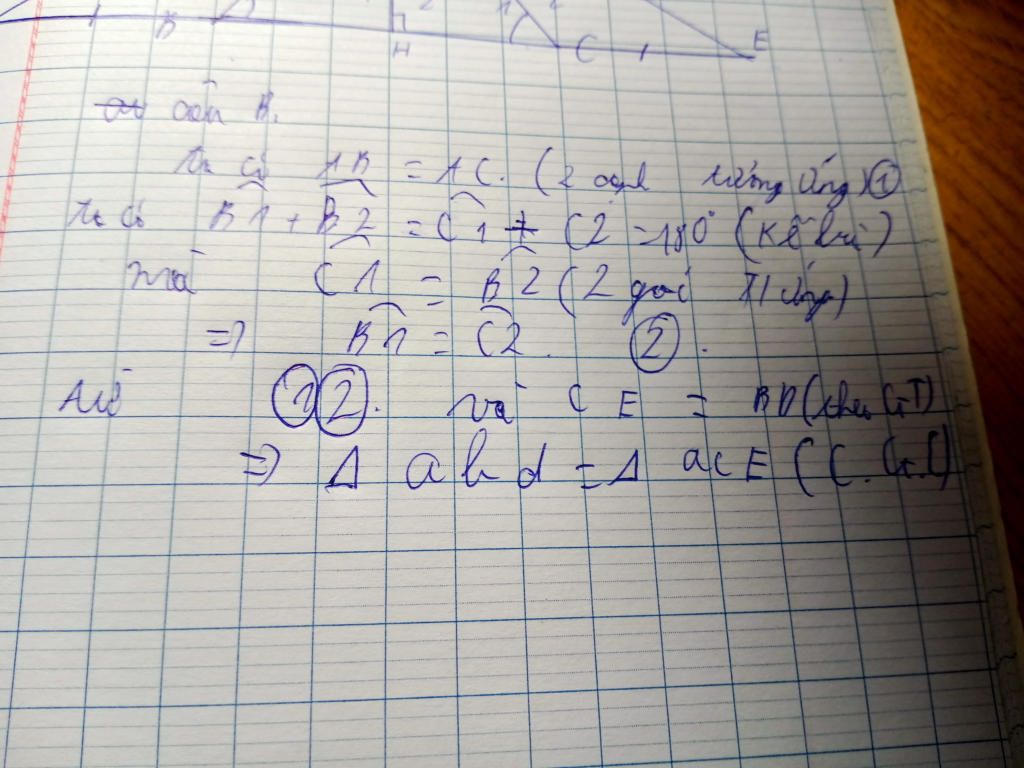 B H C E
câu B.
ta có AB = AC. (2 cạnh tương ứng) ①
ta có B1 + B2 = C1 + C2 = 180° (kề bù)
mà C1 = B2 (2 góc T/ứng)
=> B1 = C2. ②.
Từ ① ②. và CE = BD (theo GT)
=> Δ abd = Δ acE (C.G.C)